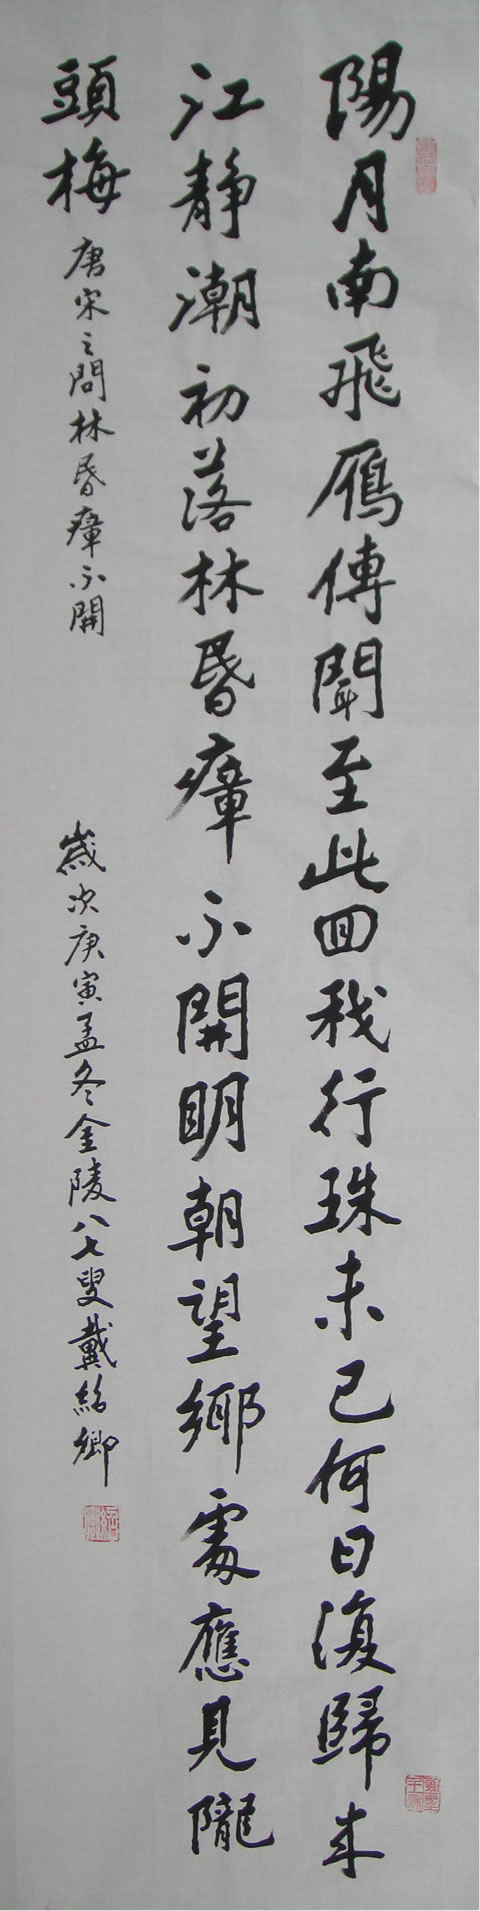 陽月南飛鴈傳聞至此回我行珠未已何日復歸来
江静潮初落林昬瘴不開明朝望鄉處應見隴
頭梅 唐宋之問林昬瘴不開 歲次庚寅孟冬金陵八七叟戴紹卿